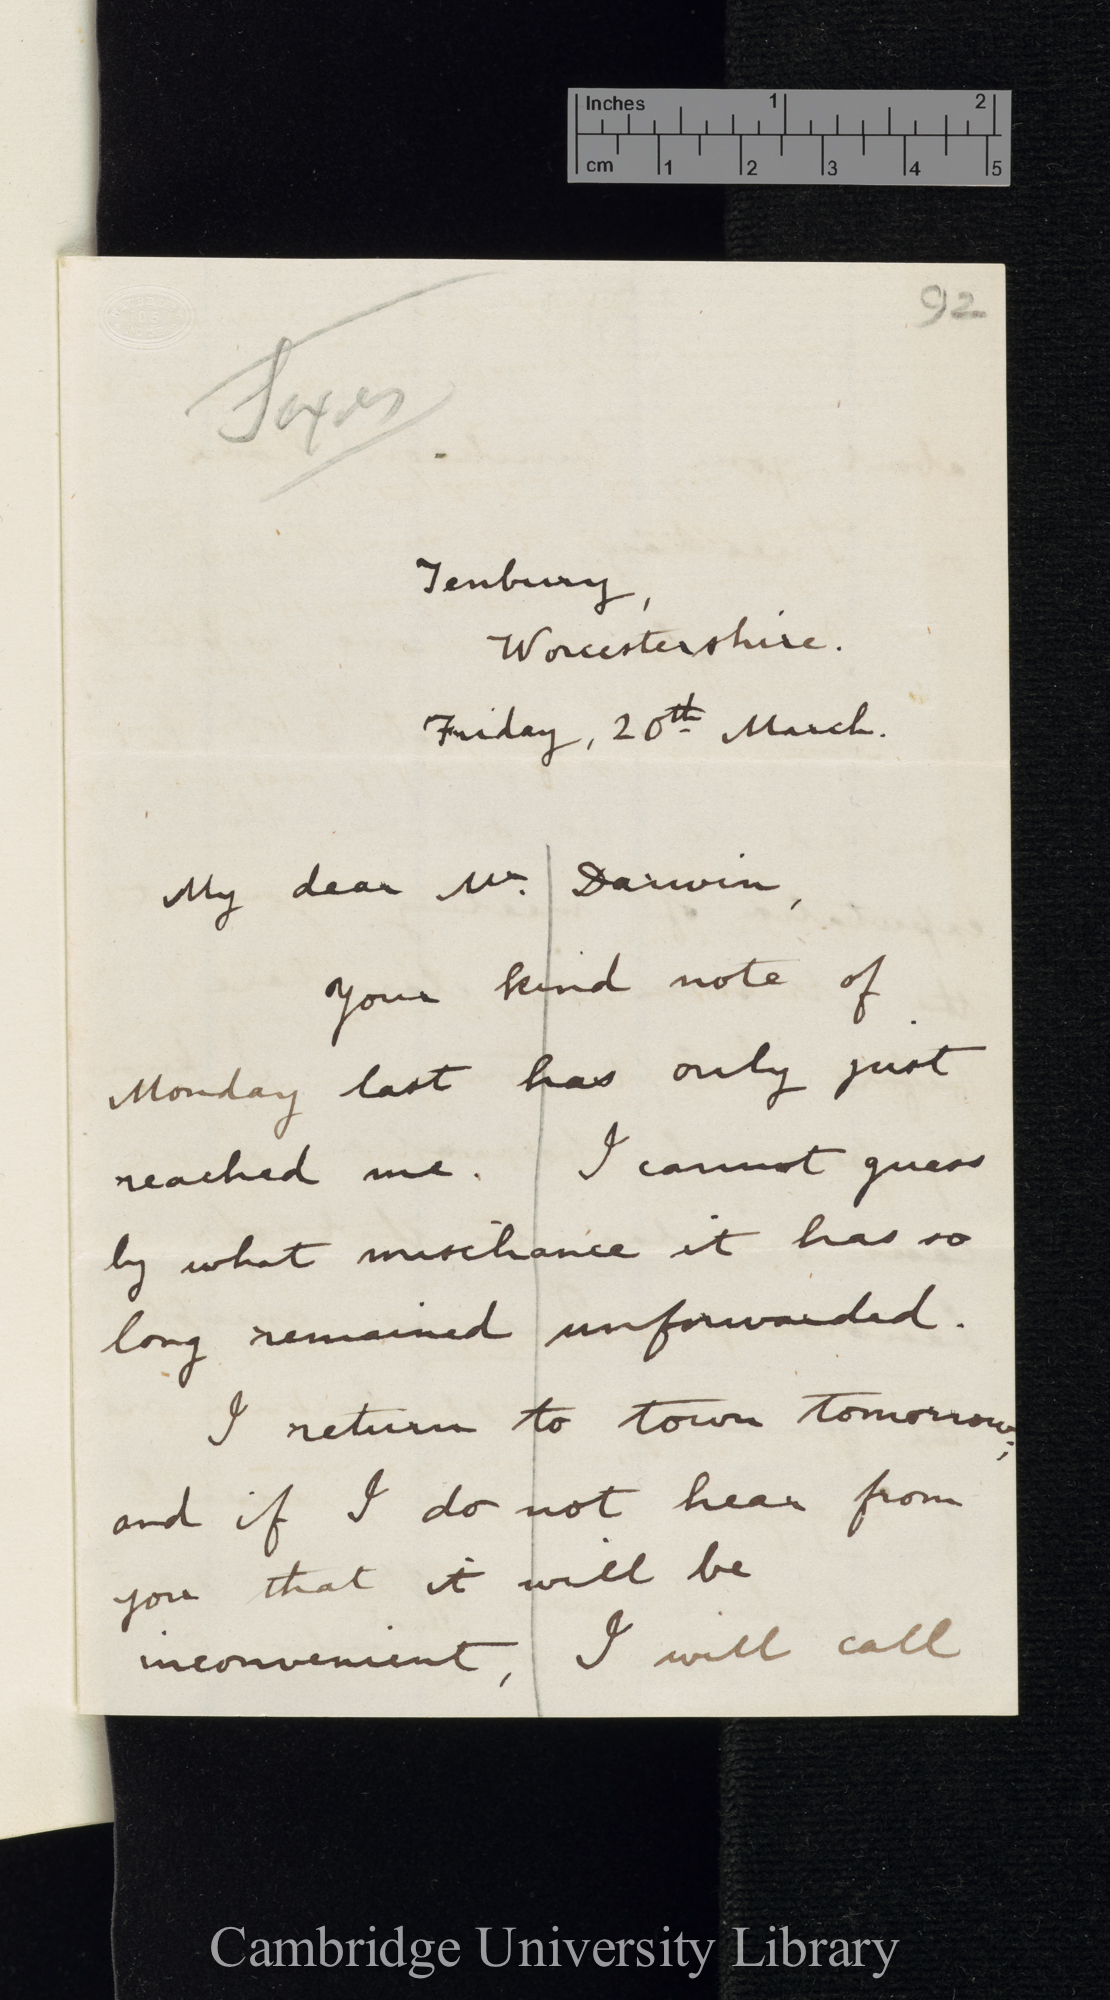 Inches 1 2
cm 1 2 3 4 5
92
Tenbury,
Worcestershire.
Friday, 20th March.
My dear Mr. Darwin,
Your kind note of
Monday last has only just
reached me. I cannot guess
by what mischance it has so
long remained unforwarded.
I return to town tomorrow;
and if I do not hear from
you that it will be
inconvenient, I will call
Cambridge University Library